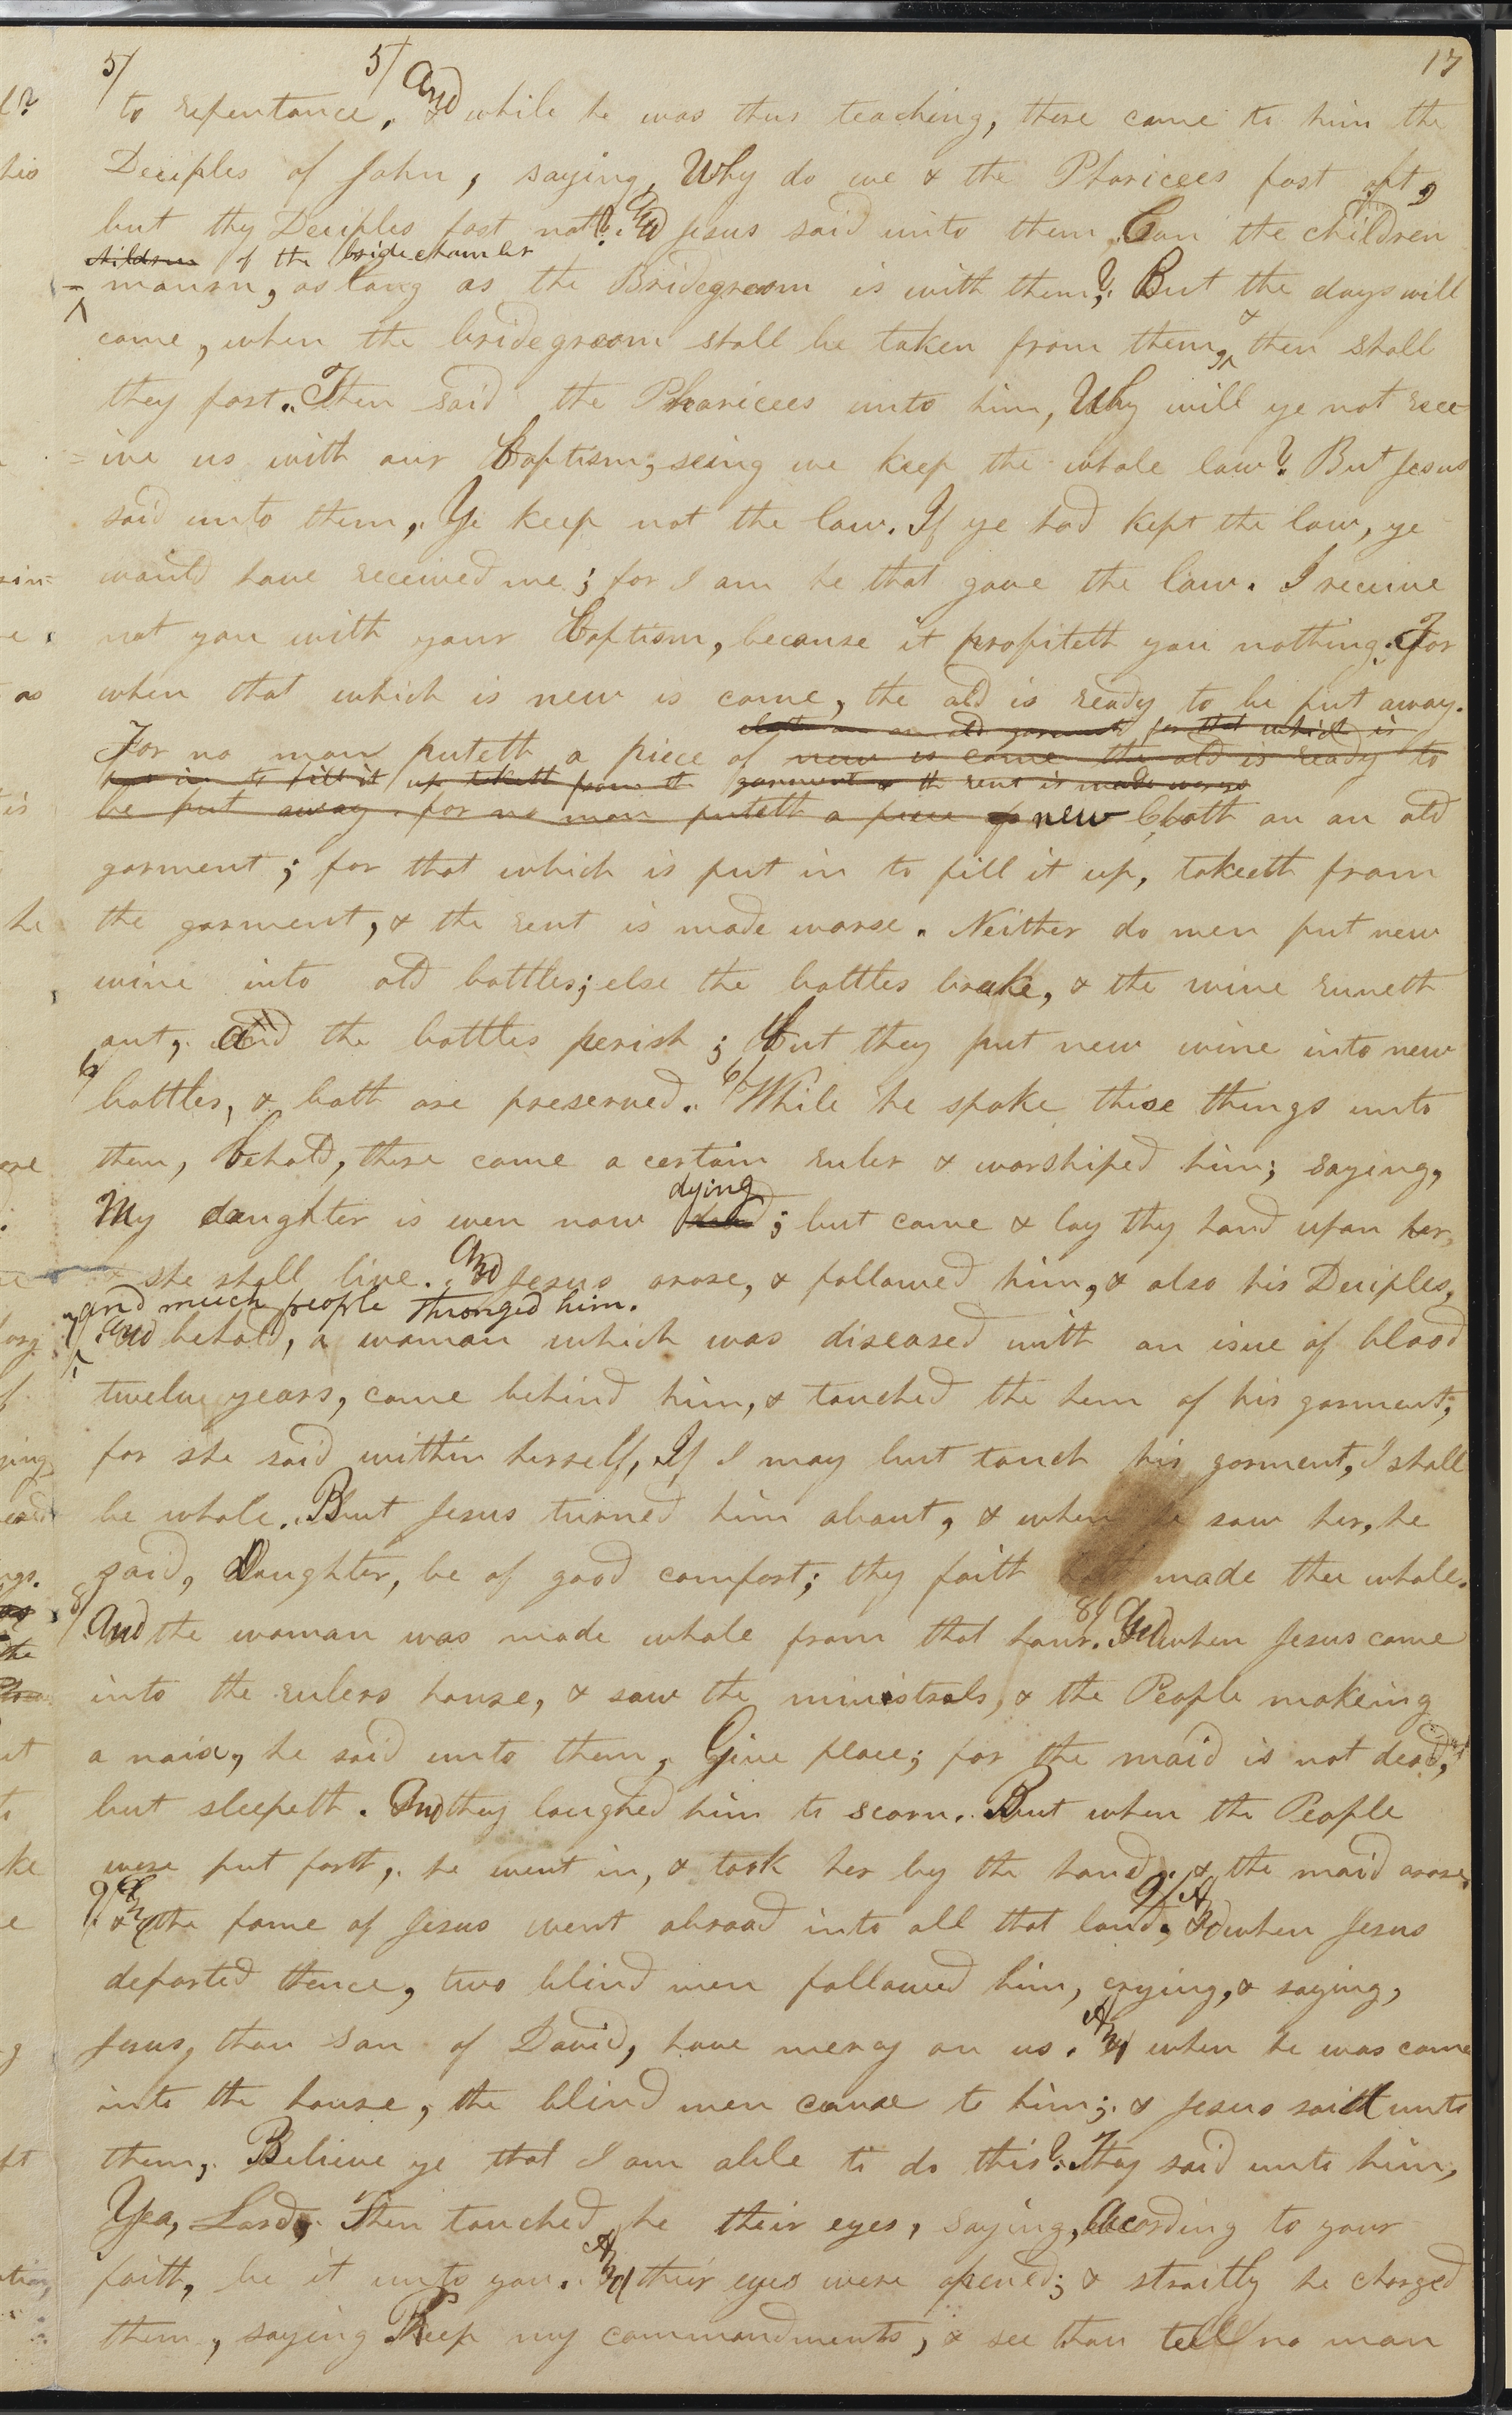 5/ 5/ 17
to repentance. And while he was thus teaching, there came to him the
Deciples of John, saying, Why do we & the Pharicees fast oft,
but thy Deciples fast not? And Jesus said unto them, Can the children
children of the bridechamber
mourn, as long as the Bridegroom is with them? But the days will
come, when the bridegroom shall be taken from them, & then shall
they fast. Then said the Pharicees unto him, Why will ye not rece
=ive us with our Baptism, seing we keep the whole law? But Jesus
said unto them, Ye keep not the law. If ye had kept the law, ye
would have received me; for I am he that gave the law. I receive
not you with your Baptism, because it profiteth you nothing. For
when that which is new is come, the old is ready to be put away.
cloth on an old garment for that which is
For no man puteth a piece of new is come the old is ready to
put in to fill it up taketh from the garment & the rent is made worse
be put away. for no man puteth a piece of new Cloth on an old
garment; for that which is put in to fill it up, taketh from
the garment, & the rent is made worse. Neither do men put new
wine into old bottles; else the bottles brake, & the wine runeth
out, and the bottles perish; But they put new wine into new
6/ bottles, & both are preserved. 6/ While he spake these things unto
them, behold, there came a certain ruler & worshiped him; saying,
dying
My daughter is even now dead; but come & lay thy hand upon her,
& she shall live. And Jesus arose, & followed him, & also his Deciples,
and much people thronged him.
7/ And behold, a woman which was diseased with an isue of blood
twelve years, came behind him, & touched the hem of his garment;
for she said within herself, If I may but touch his garment, I shall
be whole. But Jesus turned him about, & when he saw her, he
said, Daughter, be of good comfort; thy faith hath made thee whole.
8/ And the woman was made whole from that hour. 8/ And when Jesus came
into the rulers house, & saw the ministrels, & the People makeing
a noise, he said unto them, Give place; for the maid is not dead,
but sleepeth. And they laughed him to scorn. But when the People
were put forth, he went in, & took her by the hand, & the maid arose.
9/ And the fame of Jesus went abroad into all that land, 9/ And when Jesus
departed thence, two blind men followed him, crying, & saying,
Jesus, thou Son of David, have mercy on us. And when he was come
into the house, the blind men came to him; & Jesus saith unto
them, Believe ye that I am able to do this? They said unto him,
Yea, Lord, Then touched he their eyes, saying, According to your
faith, be it unto you. And their eyes were opened; & straitly he charged
them, saying Keep my commandments, & see thou tell no man